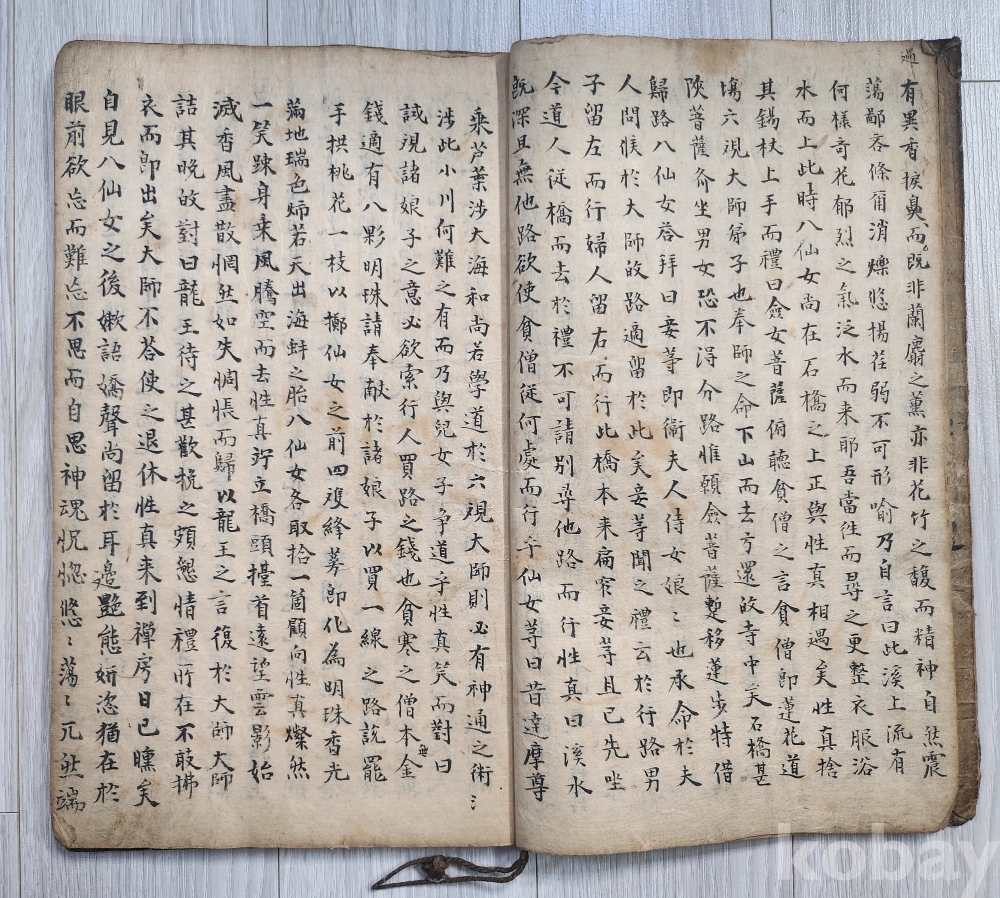 過
有異香捩鼻而既非蘭麝之薰亦非花竹之馥而精神自然震
蕩鄙吝條爾消爍悠揚荏弱不可形喻乃自言曰此溪上流有
何樣奇花郁烈之氣泛水而来耶吾當徃而尋之更整衣服浴
水而上此時八仙女尚在石橋之上正與性真相遇矣性真捨
其錫杖上手而禮曰僉女菩薩俯聽貧僧之言貧僧即蓮花道
塲六覌大師弟子也奉師之命下山而去方還故寺中矣石橋甚
陜菩薩僉坐男女恐不淂分路惟願僉菩薩蹔移蓮步特借
歸路八仙女荅拜曰妾等即衛夫人侍女娘〻也承命於夫
人問候於大師故路適留於此矣妾等聞之禮云於行路男
子留左而行婦人留右而行此橋本来扁窄妾等且已先坐
今道人従橋而去於禮不可請別尋他路而行性真曰溪水
既深且無他路欲使貧僧従何處而行乎仙女等曰昔達摩尊
乘芦葉涉大海和尚若學道於六覌大師則必有神通之術〻
涉此小川何難之有而乃與兒女子争道乎性真笑而對曰
試覌諸娘子之意必欲索行人買路之錢也貧寒之僧本無金
錢適有八顆明珠請奉献於諸娘子以買一線之路説罷
手拱桃花一枝以擲仙女之前四䨇絳萼即化為明珠香光
滿地瑞色婦若天出海蚌之胎八仙女各取拾一箇顧向性真燦然
一笑踈身乘風騰空而去性真竚立橋頭擡首遠望雲影始
滅香風盡散惘然如失惆悵而歸以龍王之言復於大師大師
詰其晚故對曰龍王待之甚歡挽之頗懇情禮所在不敢拂
衣而即出矣大師不答使之退休性真来到禪房日已曛矣
自見八仙女之後嫩語嬌聲尚留於耳邊艶態妍恣猶在於
眼前欲忘而難忘不思而自思神魂怳惚悠〻蕩〻兀然端
kobay